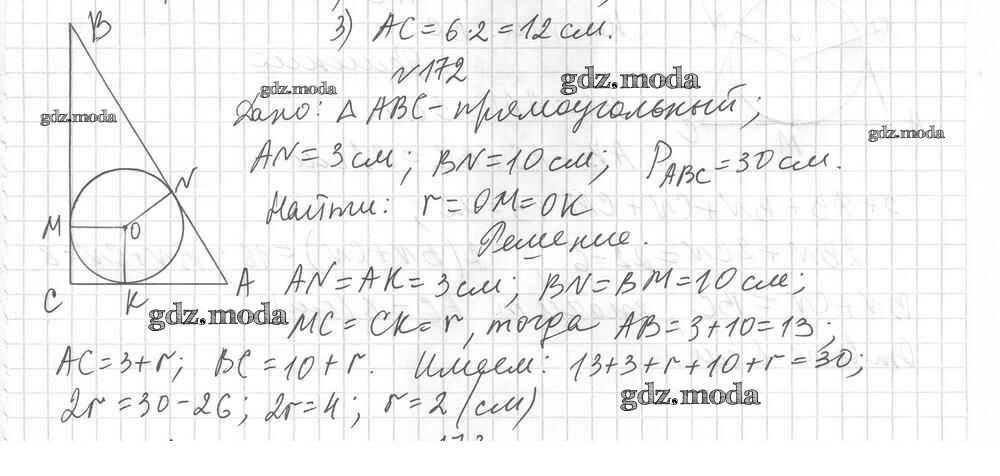 B
3) AC = 6·2 = 12 см.
№172
gdz.moda
gdz.moda
gdz.moda
gdz.moda
Дано: △ ABC - прямоугольный;
AN = 3 см; BN = 10 см; P_ABC = 30 см.
N
Найти: r = OM = OK
M
O
Решение.
C
K
A
AN = AK = 3 см; BN = BM = 10 см;
gdz.moda
MC = CK = r, тогда AB = 3 + 10 = 13;
AC = 3 + r; BC = 10 + r. Имеем: 13 + 3 + r + 10 + r = 30;
2r = 30 - 26; 2r = 4; r = 2 (см)
gdz.moda